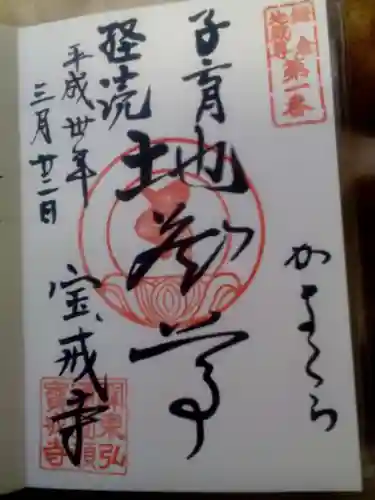 鎌倉
地蔵尊
第一番
かまくら
子育
経読
地蔵尊
平成卅年
三月廿二日
宝戒寺
関東弘
寶戒寺